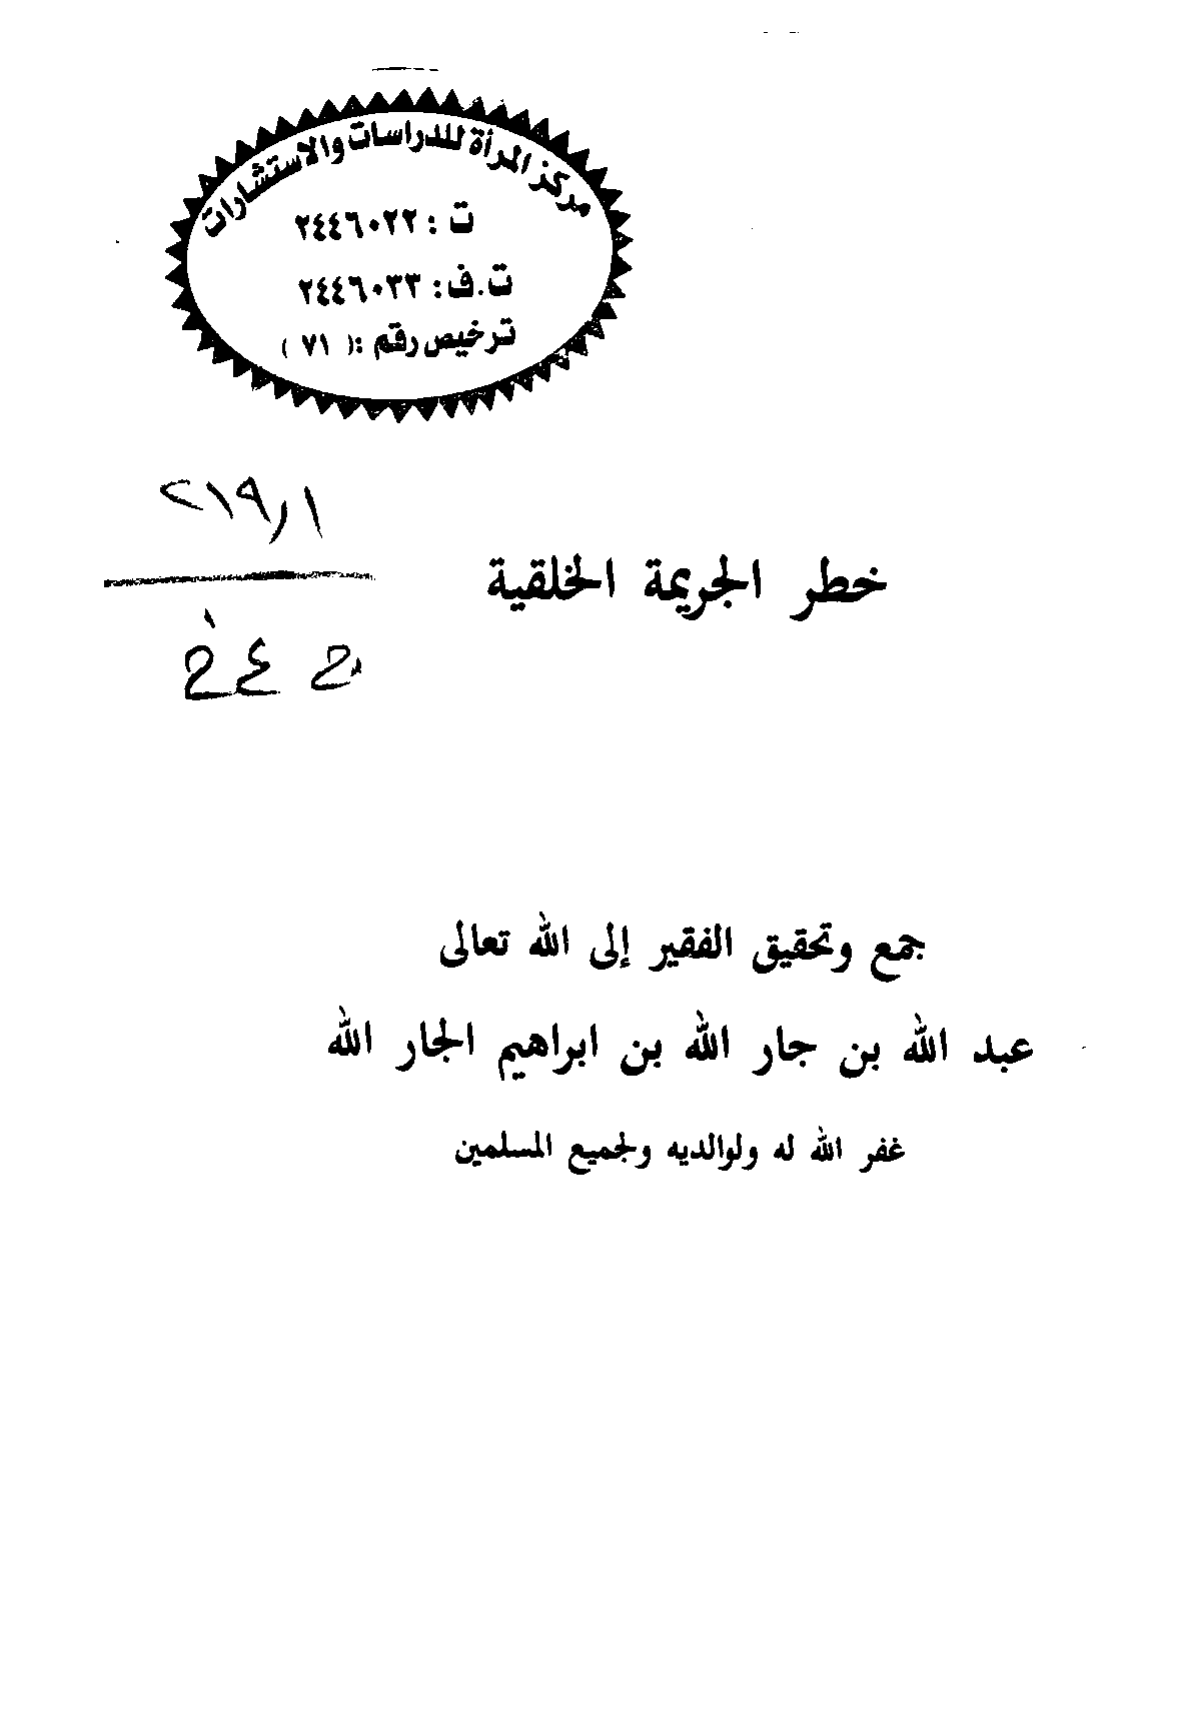 مركز المرأة للدراسات والاستشارات
ت : ٢٤٤٦٠٢٢
ت.ف: ٢٤٤٦٠٣٣
ترخيص رقم :( ٧١ )
٢١٩٫١
خطر الجريمة الخلقية
جمع وتحقيق الفقير إلى الله تعالى
عبد الله بن جار الله بن ابراهيم الجار الله
غفر الله له ولوالديه ولجميع المسلمين